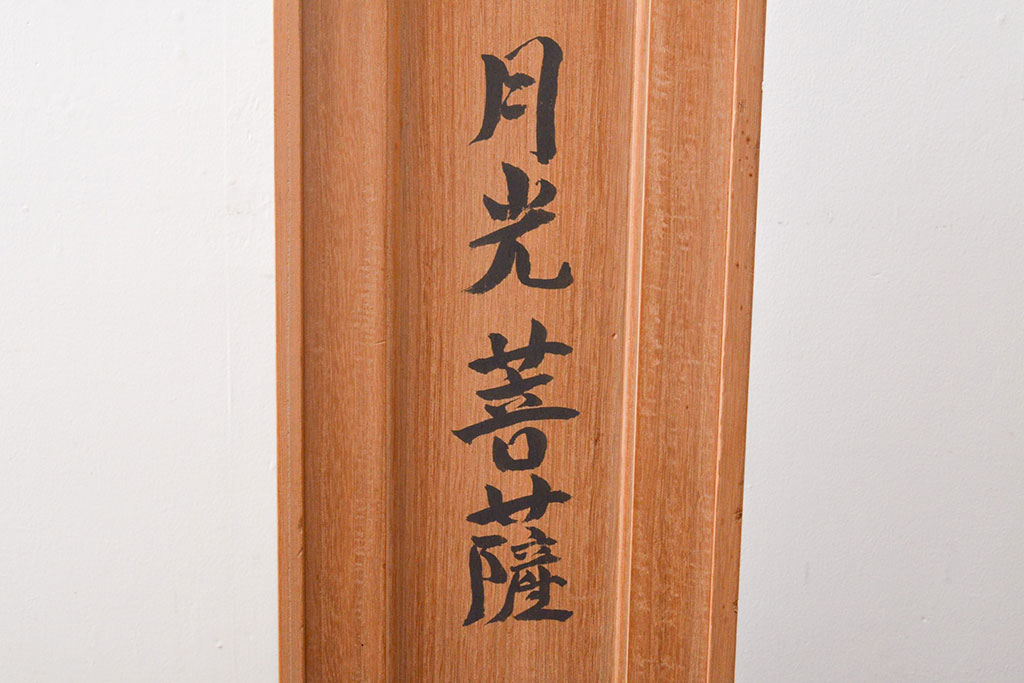 月光菩薩